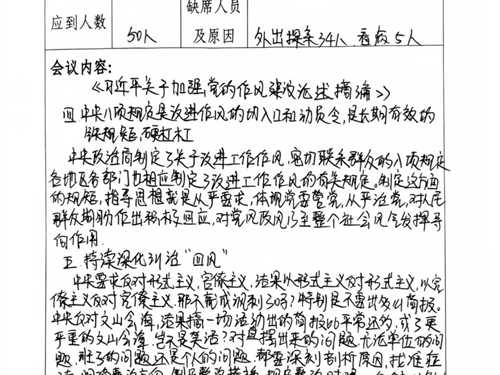 缺席人员
应到人数 50人 及原因 外出探亲34人 看病5人
会议内容:
《习近平关于加强党的作风建设论述摘编》
四 中央八项规定是改进作风的切入口和动员令,是长期有效的
铁规矩、硬杠杠
中央政治局制定了关于改进工作作风、密切联系群众的八项规定
各地区各部门也相应制定了改进工作作风的有关规定。制定这方面
的规矩,指导思想就是从严要求,体现党要管党、从严治党,对人民
群众期盼作出积极回应,对党风政风乃至整个社会风气发挥导
向作用.
五. 持续深化纠治“四风”
中央要求反对形式主义、官僚主义,结果以形式主义反对形式主义,以官
僚主义反对官僚主义,那不就成讽刺了吗?特别是不要出多少简报。
中央反对文山会海,结果搞一场活动出的简报比平常还多,成了更
严重的文山会海,岂不是笑话?对具摆出来的问题,无论单位的问
题、班子的问题还是个人的问题,都要深刻剖析原因,找准症